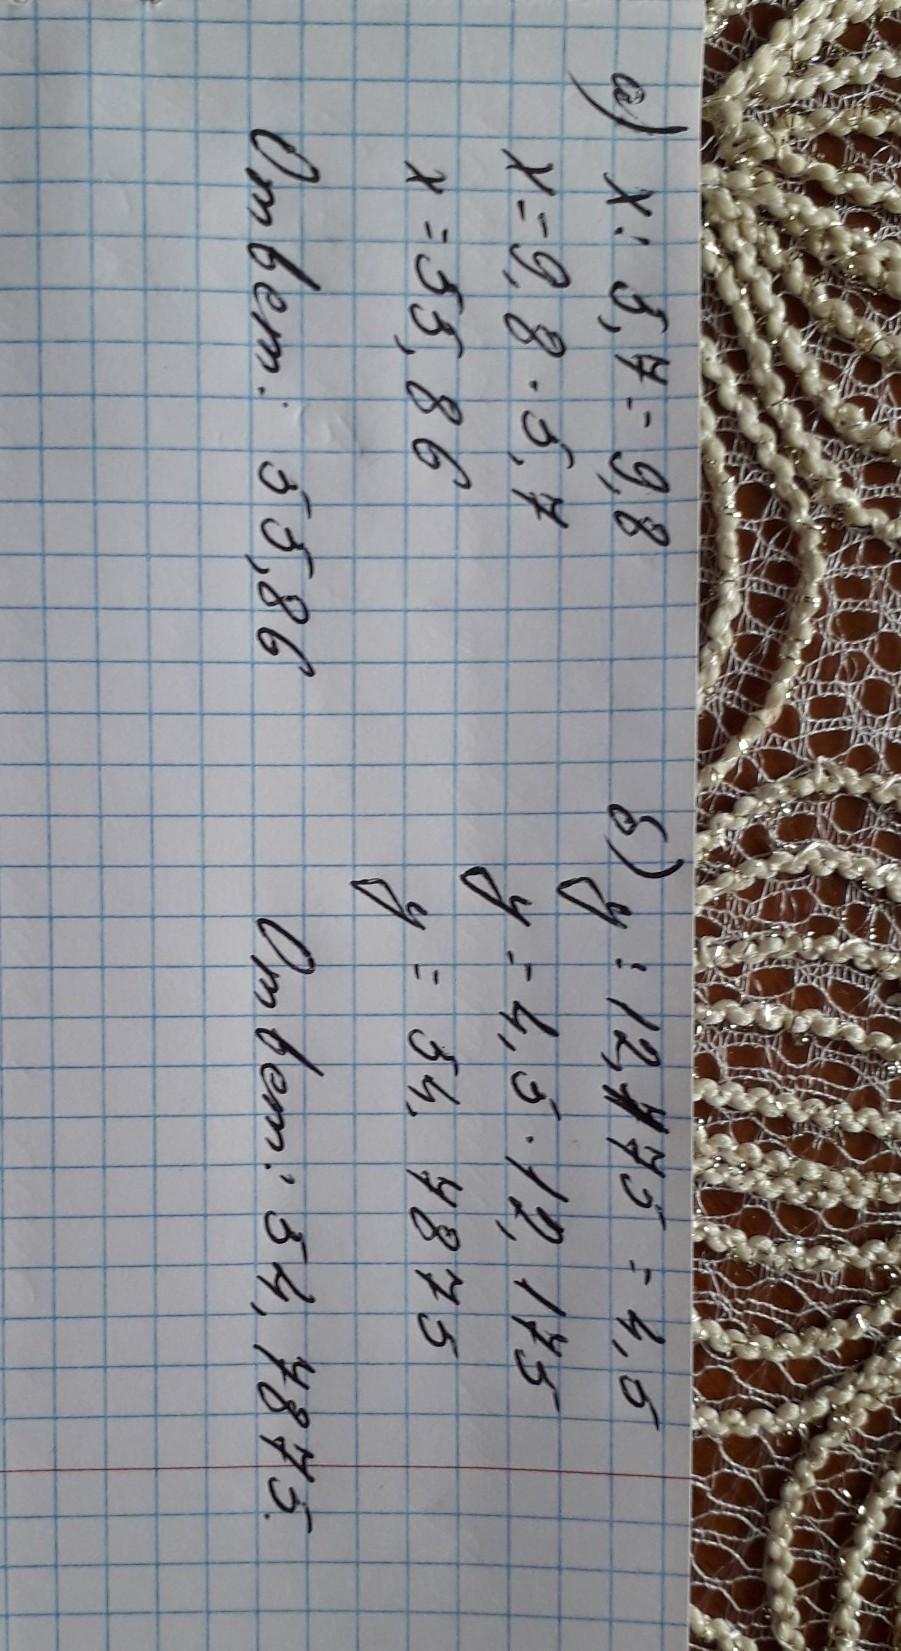 а) x : 5,7 = 9,8
x = 9,8 · 5,7
x = 55,86
Ответ: 55,86
б) y : 12,175 = 4,5
y = 4,5 · 12,175
y = 54,7875
Ответ: 54,7875